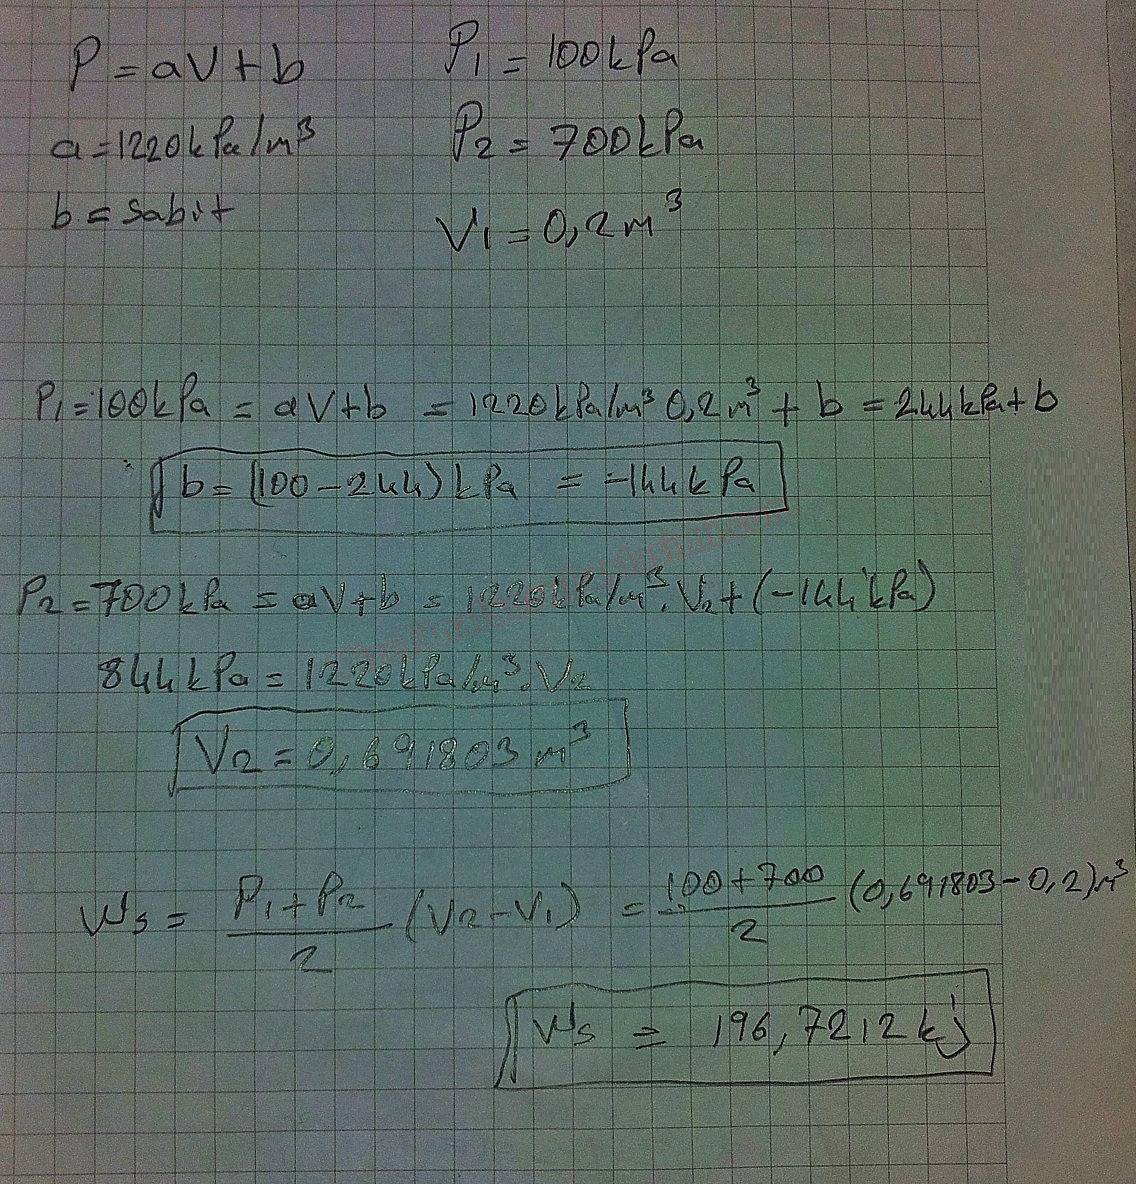 P = aV + b
P1 = 100kPa
a = 1220kPa/m³
P2 = 700kPa
b = sabit
V1 = 0,2m³
P1 = 100kPa = aV+b = 1220kPa/m³ 0,2m³ + b = 244kPa + b
b = (100-244)kPa = -144kPa
P2 = 700kPa = aV+b = 1220kPa/m³.V2 + (-144kPa)
844kPa = 1220kPa/m³.V2
V2 = 0,691803m³
Ws = (P1+P2)/2 (V2-V1) = (100+700)/2 (0,691803-0,2)m³
Ws = 196,7212kj